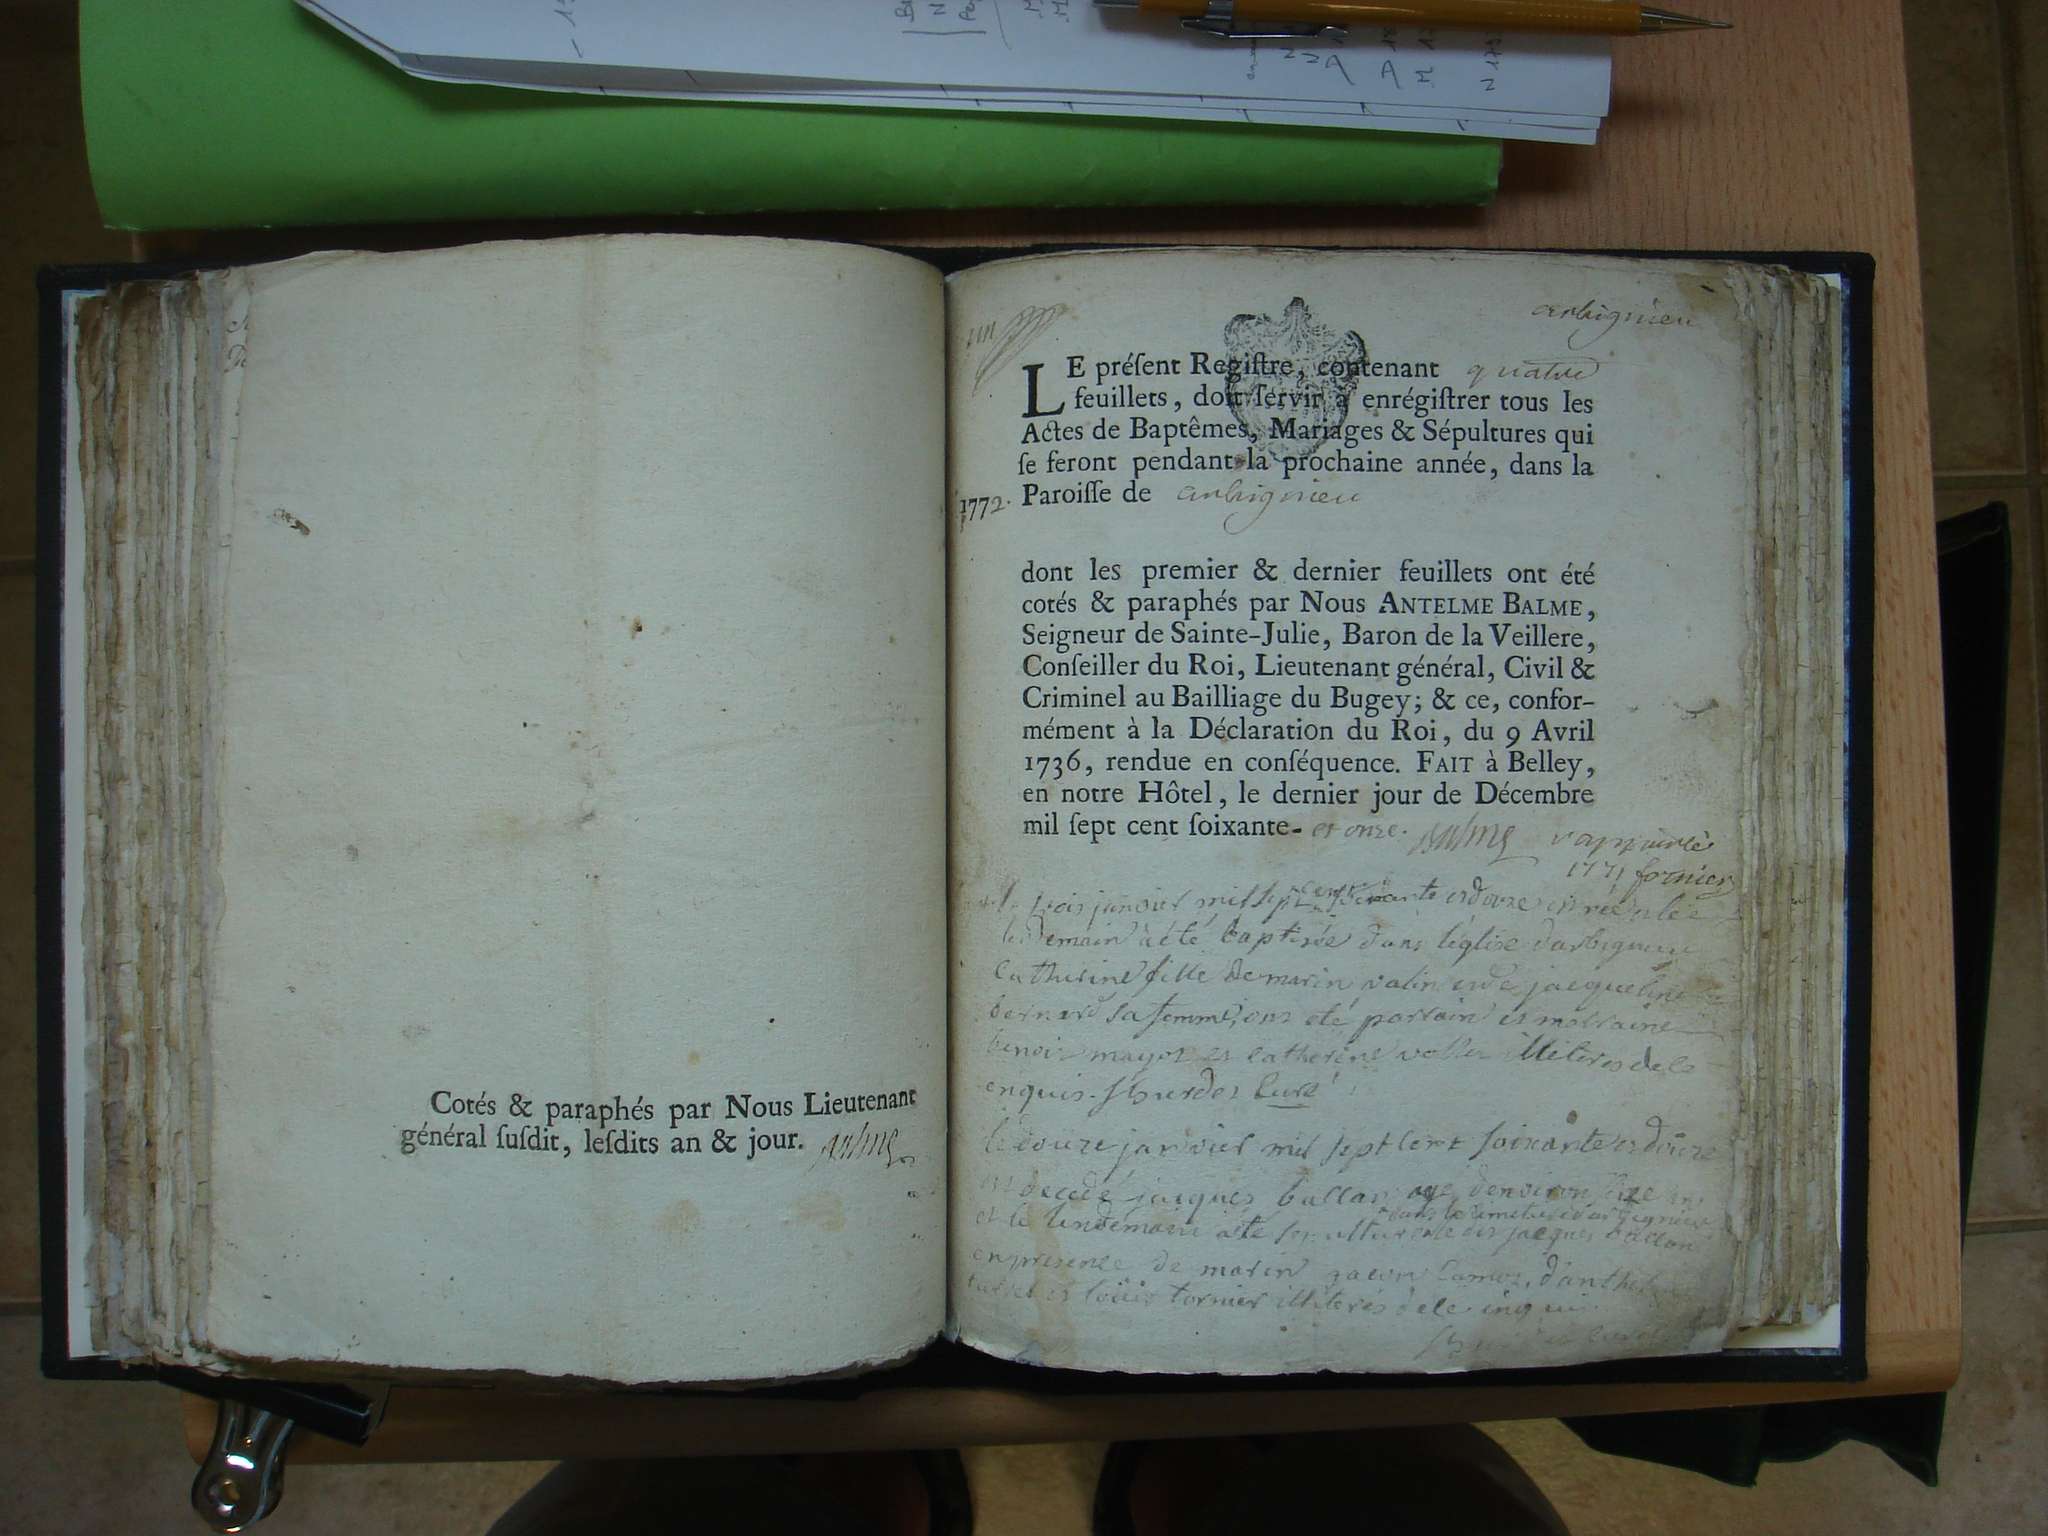 Cotés & paraphés par Nous Lieutenant
général suſdit, leſdits an & jour.
arbignieu
LE préſent Regiſtre, contenant quatre
feuillets, doit ſervir à enrégiſtrer tous les
Actes de Baptêmes, Mariages & Sépultures qui
ſe feront pendant la prochaine année, dans la
1772. Paroiſſe de arbignieu
dont les premier & dernier feuillets ont été
cotés & paraphés par Nous ANTELME BALME,
Seigneur de Sainte-Julie, Baron de la Veillere,
Conſeiller du Roi, Lieutenant général, Civil &
Criminel au Bailliage du Bugey; & ce, confor-
mément à la Déclaration du Roi, du 9 Avril
1736, rendue en conſéquence. FAIT à Belley,
en notre Hôtel, le dernier jour de Décembre
mil ſept cent ſoixante- et onze. Balme
1771 fornier
trois janvier mil sept cent soixante et douze est née et le
lendemain a été baptisée dans l'églize darbignieu
catherine fille de marin valin et de jacqueline
bernard sa femme, ont eté parrain et marraine
benoit mayot et catherine illiteres de ce
enquis. curé
le douze janvier mil sept cent soixante et douze
est decedé jacques ballan agé denviron seize ans
dans le cimetiere darbignieu
et le lendemain a été jacques ballan
en presence de marin
et loüis fornier illiterés de ce enquis